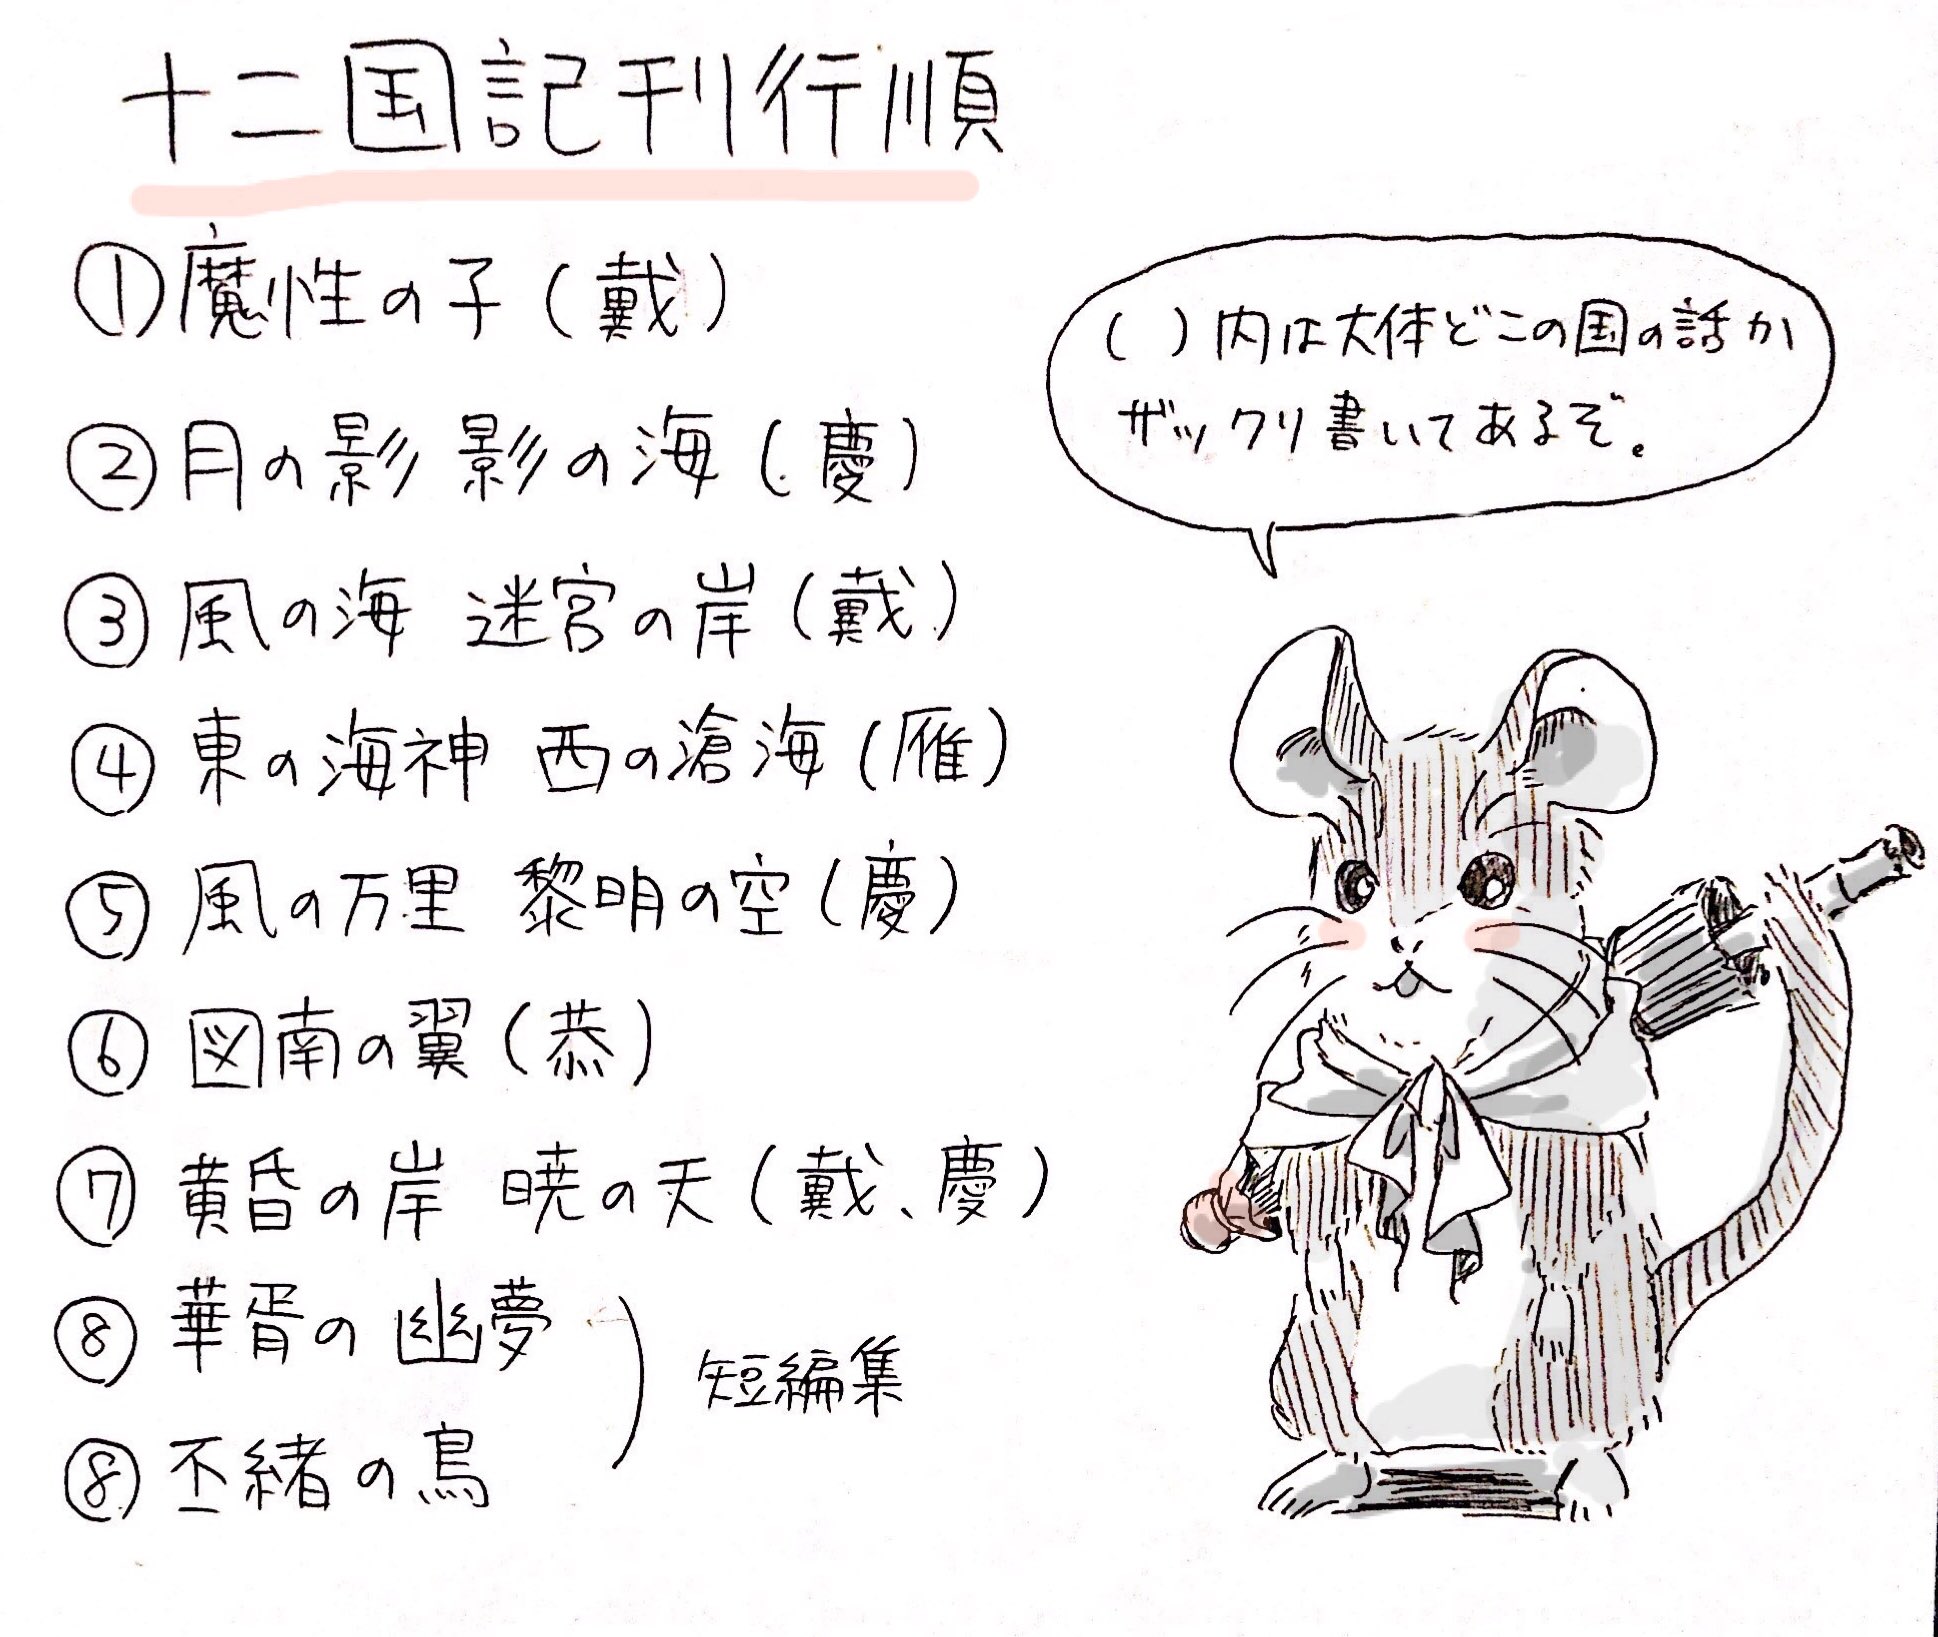 十二国記刊行順
①魔性の子(戴)
②月の影 影の海(慶)
③風の海 迷宮の岸(戴)
④東の海神 西の滄海(雁)
⑤風の万里 黎明の空(慶)
⑥図南の翼(恭)
⑦黄昏の岸 暁の天(戴、慶)
⑧華胥の幽夢
⑧丕緒の鳥
短編集
( )内は大体どこの国の話か
ザックリ書いてあるぞ。